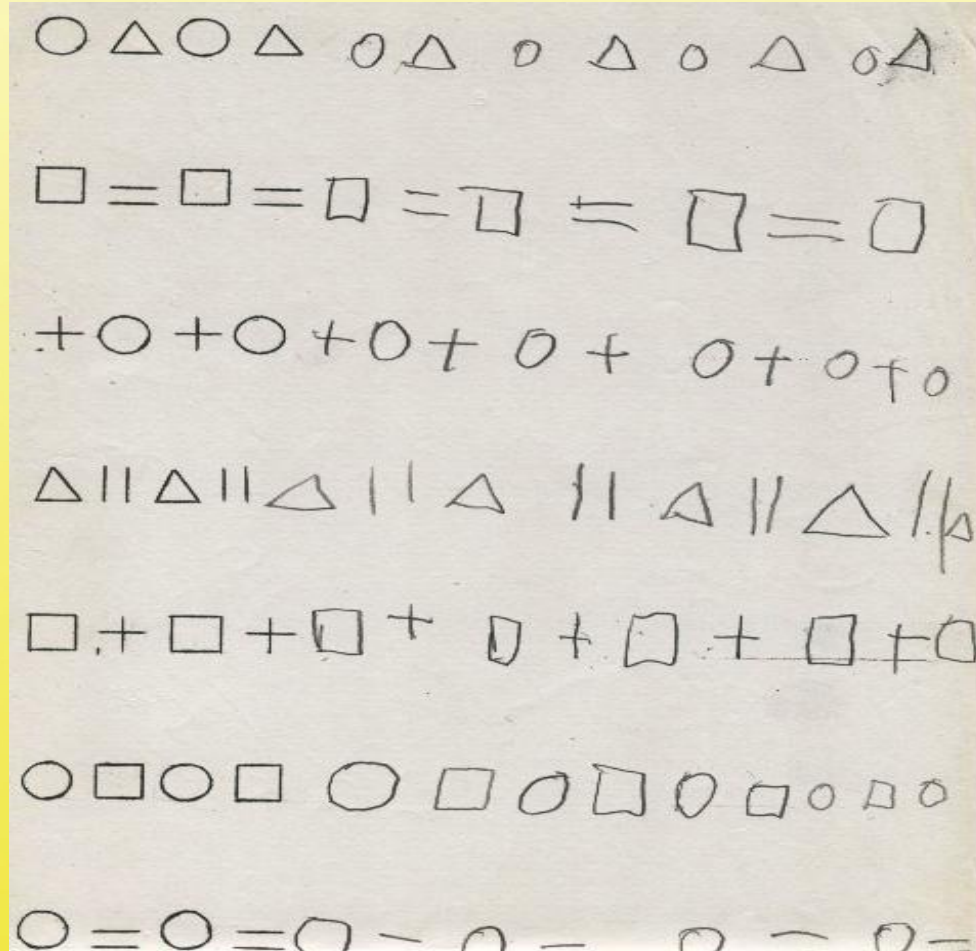 ○ △ ○ △ ○ △ ○ △ ○ △ ○ △
□ = □ = □ = □ = □ = □
+ ○ + ○ + ○ + ○ + ○ + ○ + ○
△ || △ || △ || △ || △ || △ || △
□ + □ + □ + □ + □ + □ + □
○ □ ○ □ ○ □ ○ □ ○ □ ○ □ ○